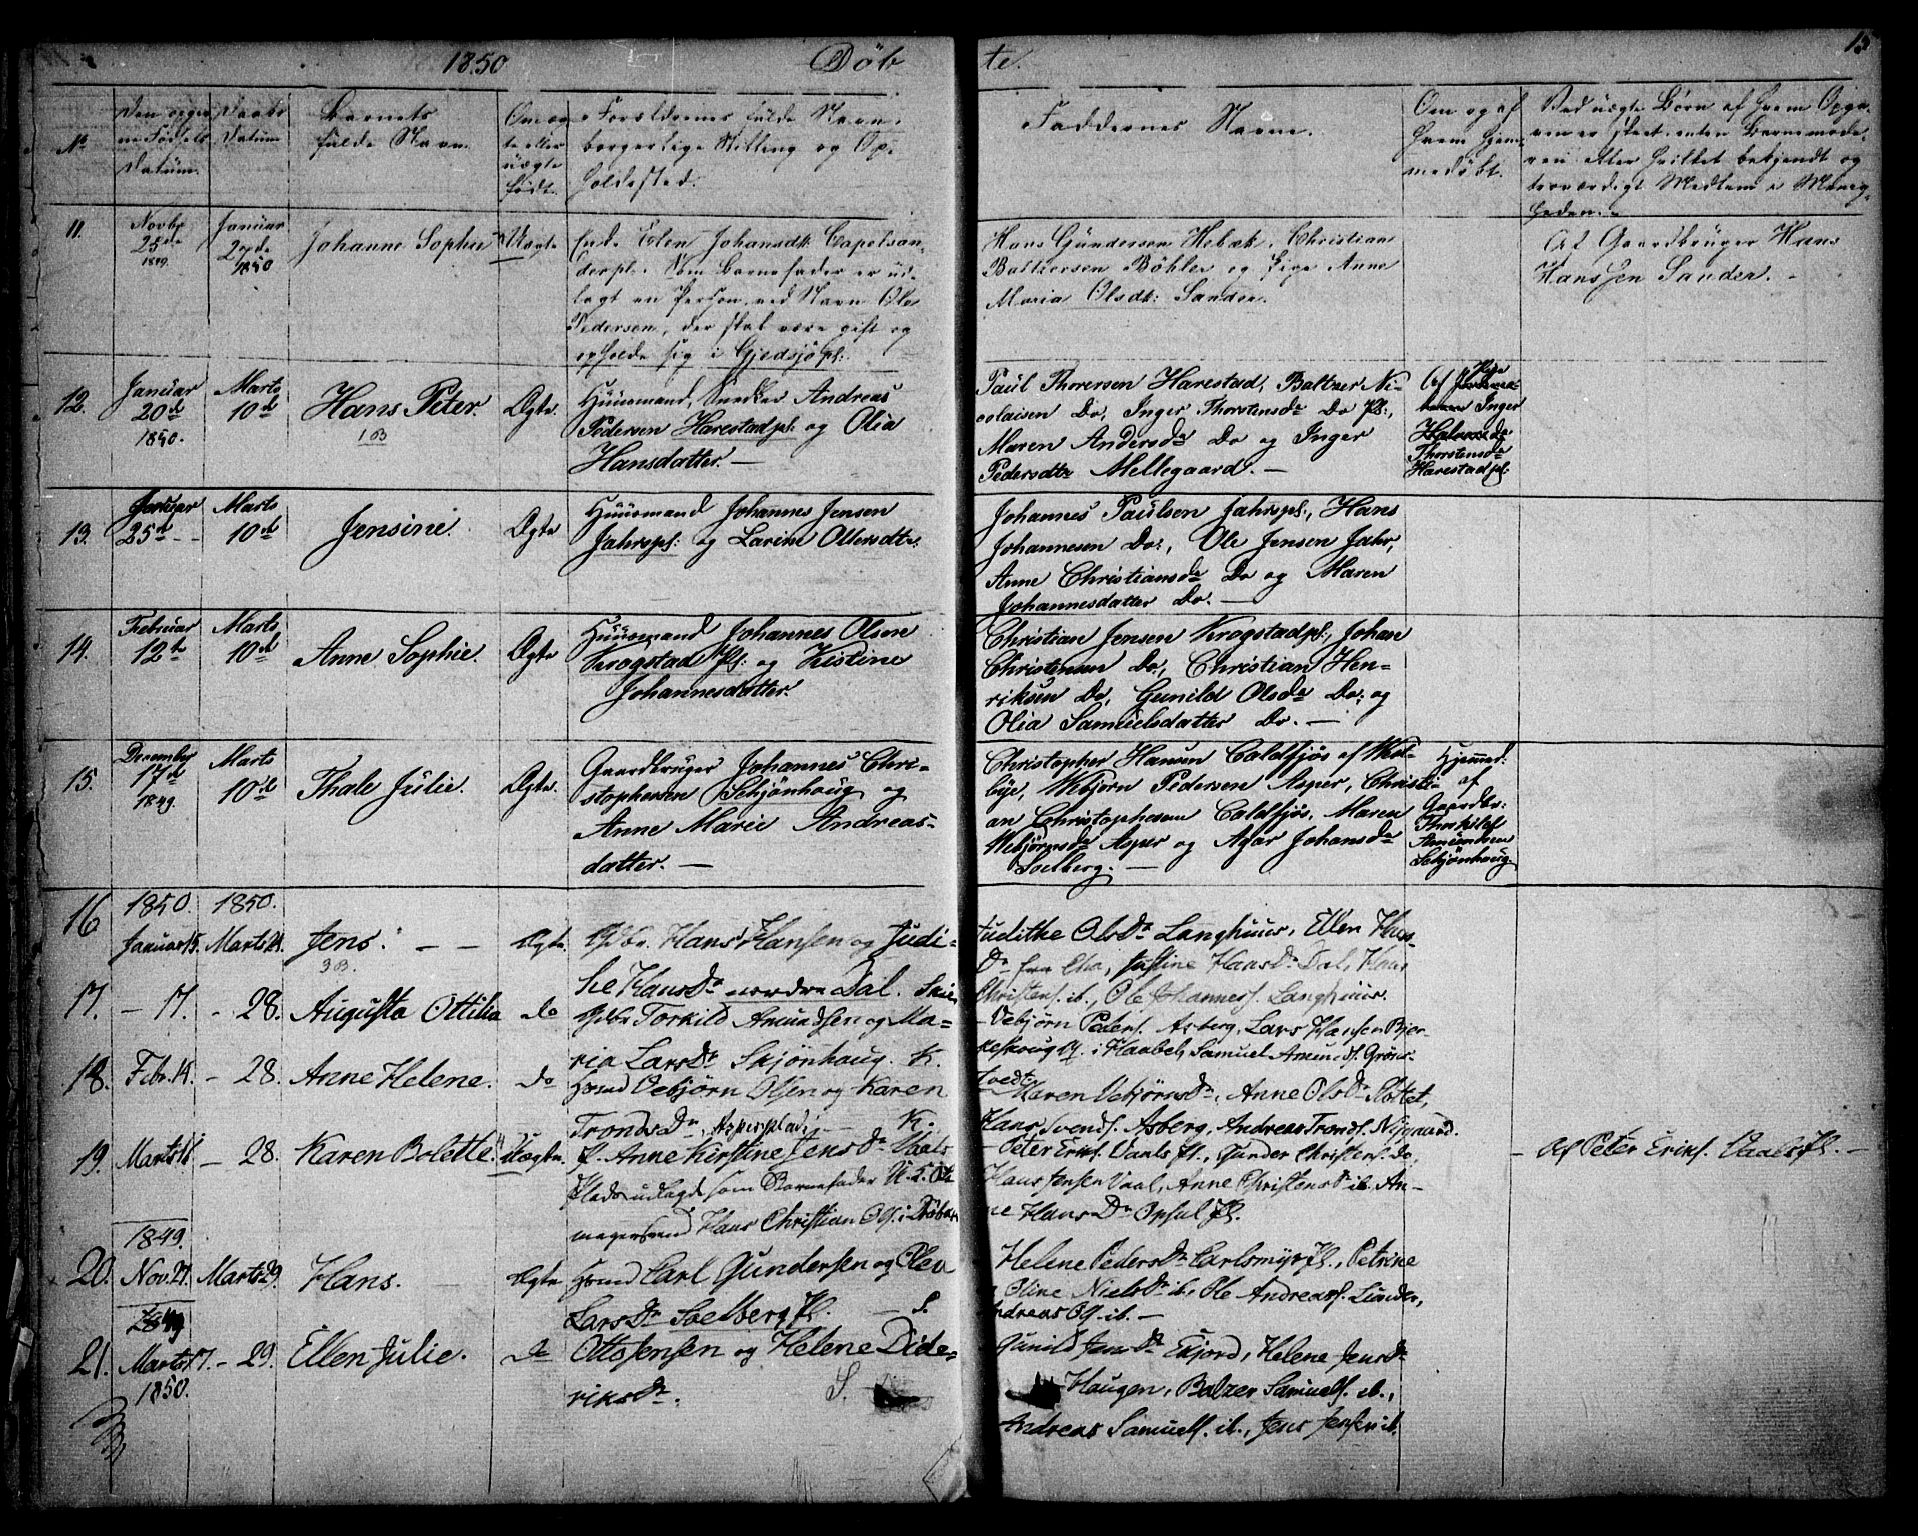 1850 Döb te. 15
No
Den opgivne Fødsels Datum.
Daabs Datum
Barnets fulde Navn.
Om ægte eller uægte födt.
Forældrenes fulde Navn, borgerlige Stilling og Opholdssted.
Faddernes Navne.
Om og af hvem hjemmedöbt.
Ved uægte Börn af hvem Opgaven er skeet, enten Barnemoderen eller hvilket bekjendt og troværdigt Medlem i Menigheden.
11.
Novbr 25de 1849.
Januar 27de 1850
Johanne Sophie
Uægte
Johansdtr
lagt en Person ved Navn Ole
Pedersen, der skal være gift og
opholde sig i Gjedsjöpl:
Hans Gundersen Hebæk, Christian
Bastiersen Böhler og Pige Anne
Maria Olsdtr: Sander.
Af Gaardbruger Hans
Hanssen Sander. -
12.
Januar 20d 1850.
Marts 10d
Hans Peter.
1 B
Ægte.
Huusmand, Snedker Andreas
Pedersen Harestadpl: og Olia
Hansdatter. —
Paul Thorersen Harestad, Baltzer Ni-
colaisen Do, Inger Thorstensda Do Pl.,
Maren Andersda Do og Inger
Pedersdtr Mellegaard. —
Af
Inger
Thorstensda
Harestadpl.
13.
Januar 25d - -
Marts 10d
Jensine.
Ægte
Huusmand Johannes Jensen
Jahrspl: og Larine Ollersdtr.
Johannes Paulsen Jahrspl., Hans
Johannesen Do., Ole Jensen Jahr,
Anne Christiansda Do og Maren
Johannesdatter Do. —
14.
Februar 12t
Marts 10d
Anne Sophie.
Ægte
Huusmand Johannes Olsen
Krogstad Pl: og Kistine
Johannesdatter.
Christian Jensen Krogstadpl., Johan
Christensen Do, Christian Hen-
riksen Do, Gunild Olsda Do, og
Olia Samuelsdatter Do. —
15.
December 17d 1849.
Marts 10d
Thale Julie.
Ægte.
Gaardbruger Johannes Chri-
stophersen Schjönhoug og
Anne Marie Andreas-
datter. —
Christopher Hansen Coldsjös af West-
bye, Webjorn Pedersen Asper, Christi-
an Christophersen Coldsjös, Maren
Webjörnsda Asper og Agar Johansda
Soelberg. —
Hjemmed:
af
Gaardbr:
Thorkild
Amundsen
Schjönhoug
16
1850. Januar 15.
1850. Marts 24.
Jens. - -
3 B.
Ægte.
Gdbr. Hans Hansen og Judi-
the Hansdr nordre Dal. Skie
Judithe Olsdr Langhuus, Ellen Hans-
Justine Hansdr Dal, Hans
Christens. ib., Ole Johanness. Langhuus.
17.
- 17.
- 28.
Augusta Ottilia
do
Gdbr Torkild Amundsen og Ma-
ria Larsdr Skjönhaug. K.
Vebjörn Peders. Asberg, Lars Hansen Bjer-
keskoug pl. i Haabel, Samuel Amunds. Gröns-
tvedt
18.
Febr. 14
- 28.
Anne Helene.
do
Hsmd Vebjörn Olsen og Karen
Trondsdr, Asperplads. — K.
Karen Vebjörnsdr, Anne Olsdr Slottet,
Hans Svends. Asberg, Andreas Tronds. Nyggaard.
19.
Marts 18
- 28.
Karen Bolette.
Uægte.
P. Anne Kirstine Jensdr Vaals
Plads udlagde som Barnefader
Hans Christian Ols. i Dröbak
Peter Eriks. Vaals pl., Gunder Christens. do,
Hans Jensen Vaal, Anne Christensdr ib. An-
ne Hansdr Opsal Pl.
- Af Peter Eriks. Vaals Pl. -
20.
1849. Nov. 27.
Marts 29.
Hans.
Ægte
Hsmd Carl Gundersen og Olea
Larsdr Soelberg Pl. — S.
Helene Pedersdr Carlsmyr Pl., Petrine
Oline Nielsdr ib., Ole Andreass. Lunder,
Andreas Ols. ib. —
21.
1849
Marts 17. 1850.
- 29.
Ellen Julie.
do
Otto Jensen og Helene Dide-
riksdr. S.
Gunild Jensdr Ekjord, Helene Jensdr
Haugen, Balzer Samuels. ib.,
Andreas Samuels. ib., Jens Jensen ib.